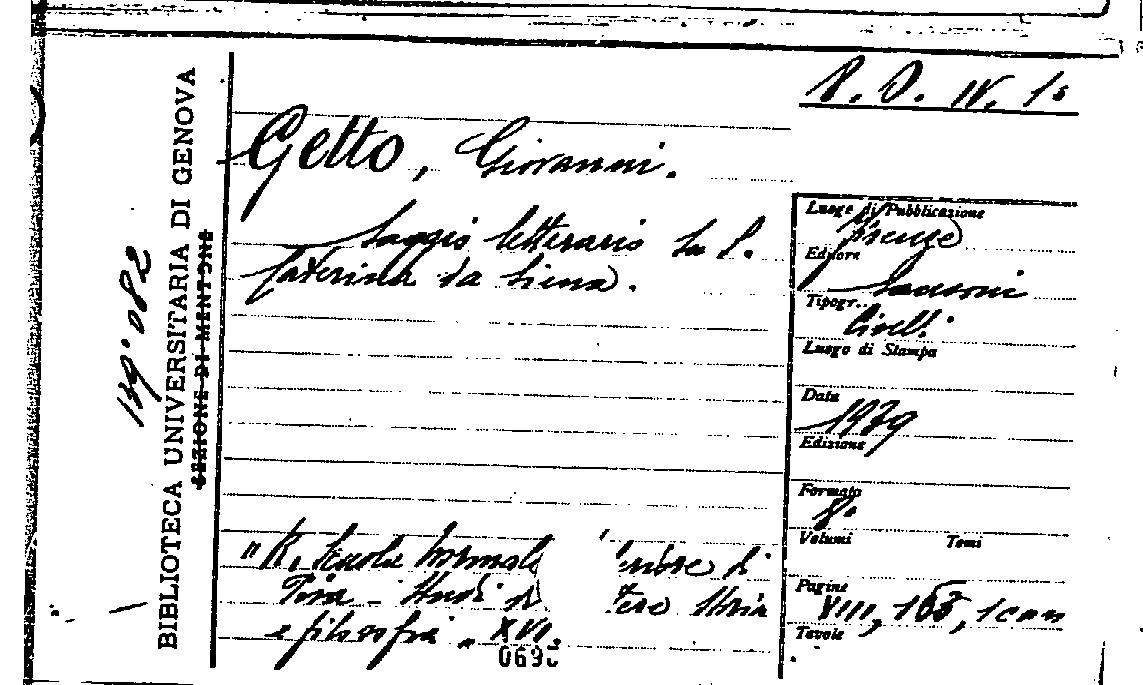 Getto, Giovanni.
Saggio letterario su S.
Caterina da Siena.
"R. Scuola Normale
Pisa - Studi di
e filosofia" XVI.
069
BIBLIOTECA UNIVERSITARIA DI GENOVA
SEZIONE DI MENTONE
Luogo di Pubblicazione
Firenze
Editore
Sansoni
Tipogr...
Civelli
Luogo di Stampa
Data
1939
Edizione
Formato
8°
Volumi Tomi
Pagine
VIII, 168, 1 can
Tavole